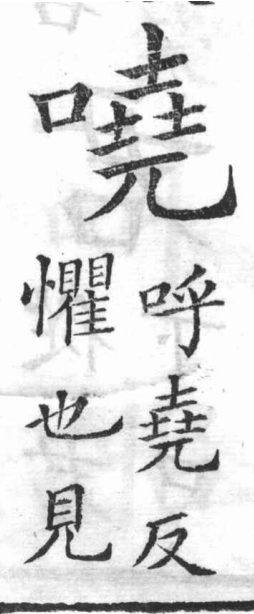 嘵
呼堯反
懼也見